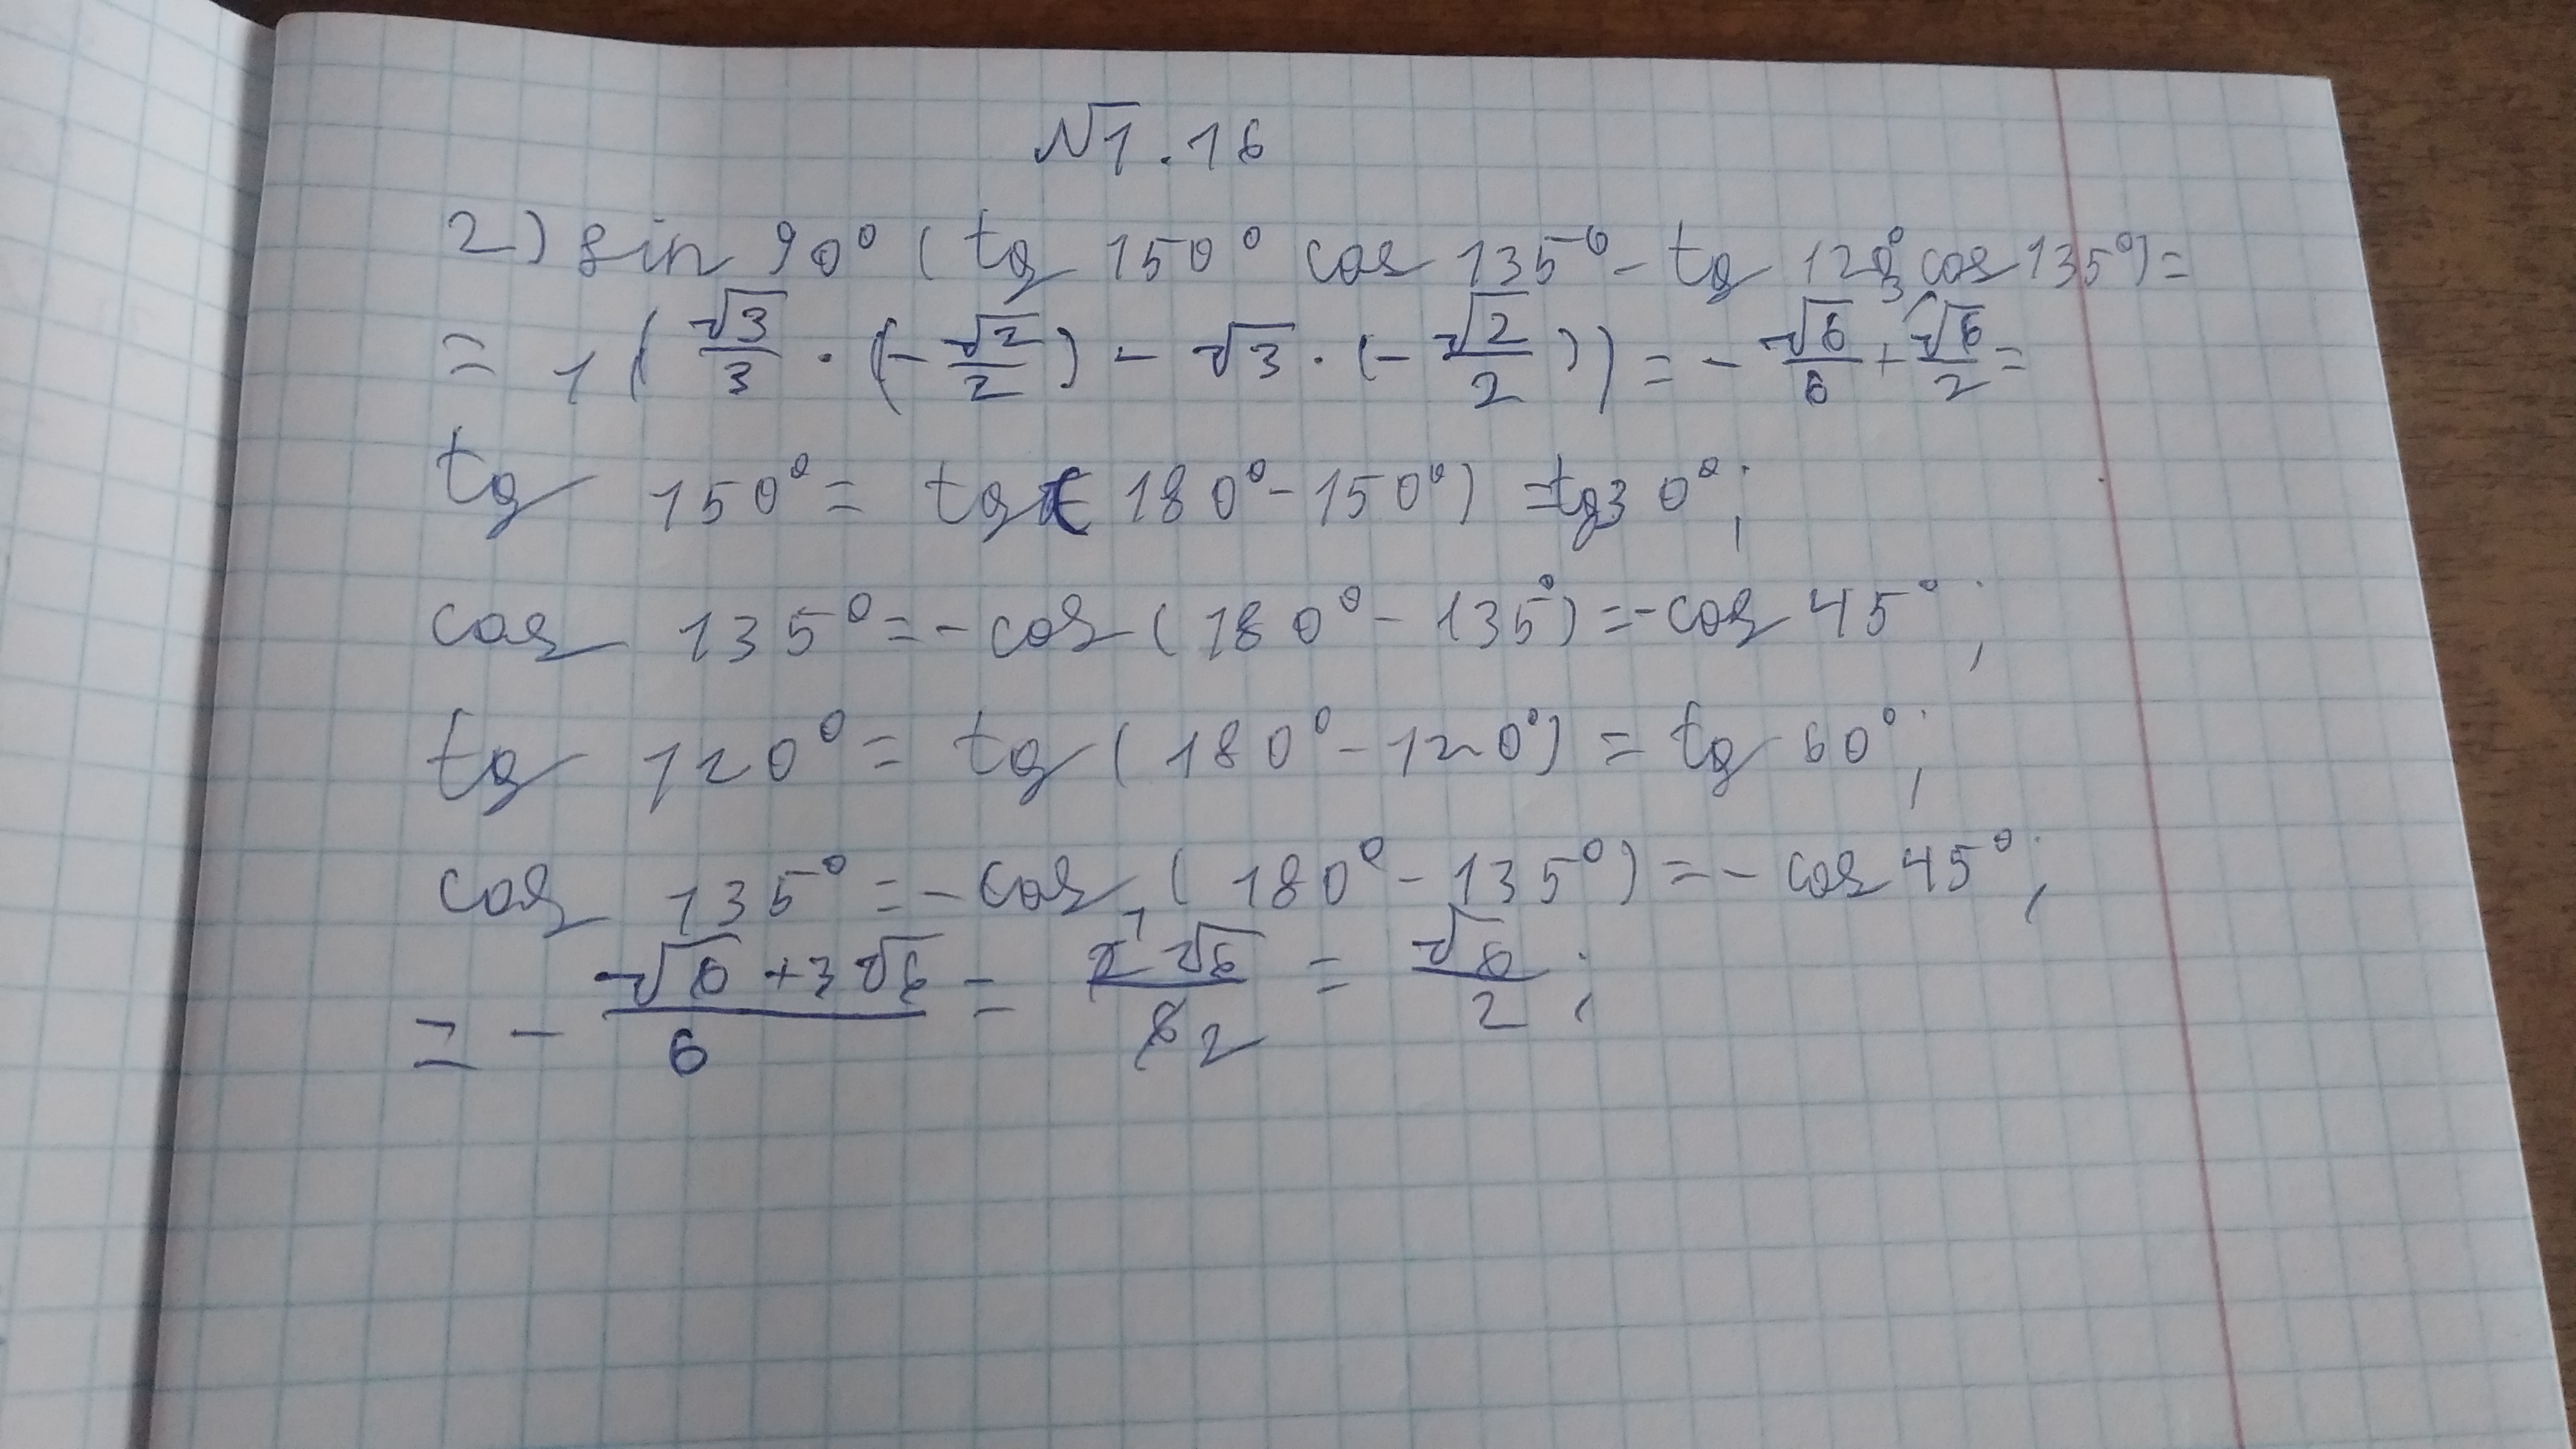 №1.16
2) sin 90° ( tg 150° cos 135° - tg 120° cos 135°) =
= 1 ( √3/3 · (- √2/2) - √3 · (- √2/2)) = - √6/6 + ³√6/2 =
tg 150° = tg ( 180° - 150°) = tg 30° ;
cos 135° = - cos ( 180° - 135°) = - cos 45° ;
tg 120° = tg ( 180° - 120°) = tg 60° ;
cos 135° = - cos ( 180° - 135°) = - cos 45° ;
= - (√6 + 3√6)/6 = 2¹√6/6 2 = √6/2 ;